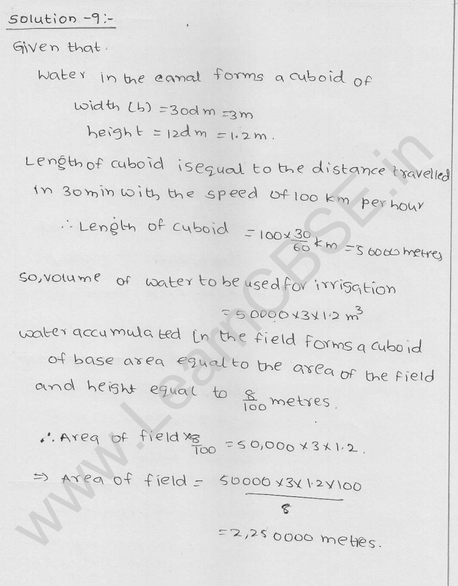 Solution -9:-
Given that.
Water in the canal forms a cuboid of
width (b) = 30dm = 3m
height = 12dm = 1.2m.
Length of cuboid is equal to the distance travelled
in 30min with the speed of 100 km per hour
∴ Length of cuboid = 100 × 30/60 km = 50000 metres
So, volume of water to be used for irrigation
= 50000 × 3 × 1.2 m³
Water accumulated in the field forms a cuboid
of base area equal to the area of the field
and height equal to 8/100 metres.
∴ Area of field × 8/100 = 50,000 × 3 × 1.2.
⇒ Area of field = 50000 × 3 × 1.2 × 100 / 8
= 2,250000 metres.
www.LearnCBSE.in